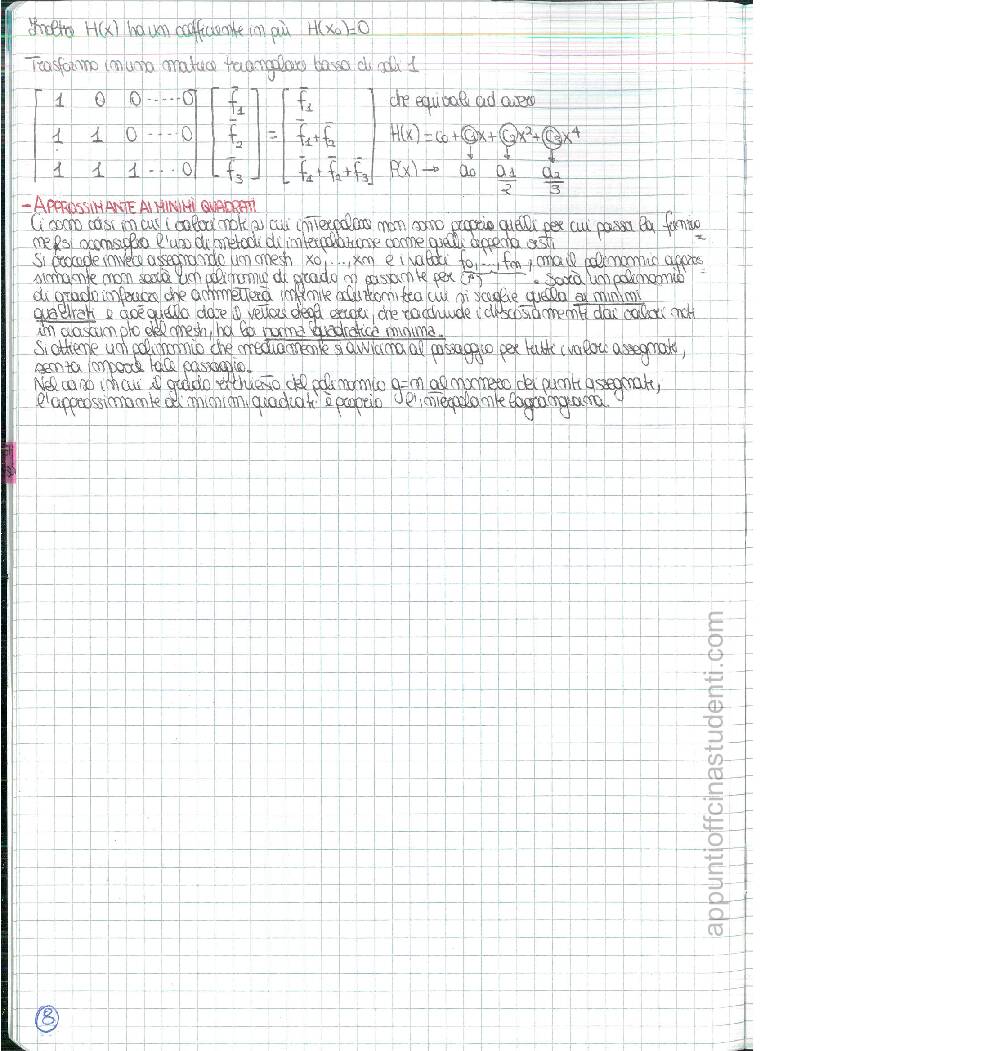 Inoltre H(x) ha un coefficiente in più H(x₀)=0
Trasformo in una matrice triangolare bassa di soli 1
[1 0 0 ..... 0] [f̄₁] = [f̄₁] che equivale ad avere
[1 1 0 ..... 0] [f̄₂] [f̄₁+f̄₂] H(x) = c₀ + c₁x + c₂x² + c₃x⁴
[1 1 1 ... 0] [f̄₃] [f̄₁+f̄₂+f̄₃] P(x) → a₀ a₁/2 a₂/3
- APPROSSIMANTE AI MINIMI QUADRATI
Ci sono casi in cui i valori noti su cui interpolare non sono proprio quelli per cui passa la funzio
ne si sconsiglia l'uso di metodi di interpolazione come quelli appena visti.
Si procede invece assegnando un mesh x₀,...,xm e i valori f₀,...,fm, ma il polinomio appros
simante non sarà un polinomio di grado n passante per . Sarà un polinomio
di grado inferiore, che ammetterà infinite soluzioni tra cui si sceglie quella ai minimi
quadrati e cioè quella dove il vettore degli errori, che racchiude i discostamenti dai valori noti
in ciascun pto del mesh, ha la norma quadratica minima.
Si ottiene un polinomio che mediamente si avvicina al passaggio per tutti i valori assegnati,
senza imporre tale passaggio.
Nel caso in cui il grado richiesto del polinomio q=n al numero dei punti assegnati,
l'approssimante ai minimi quadrati è proprio l'interpolante lagrangiana.
8
appuntioffcinastudenti.com